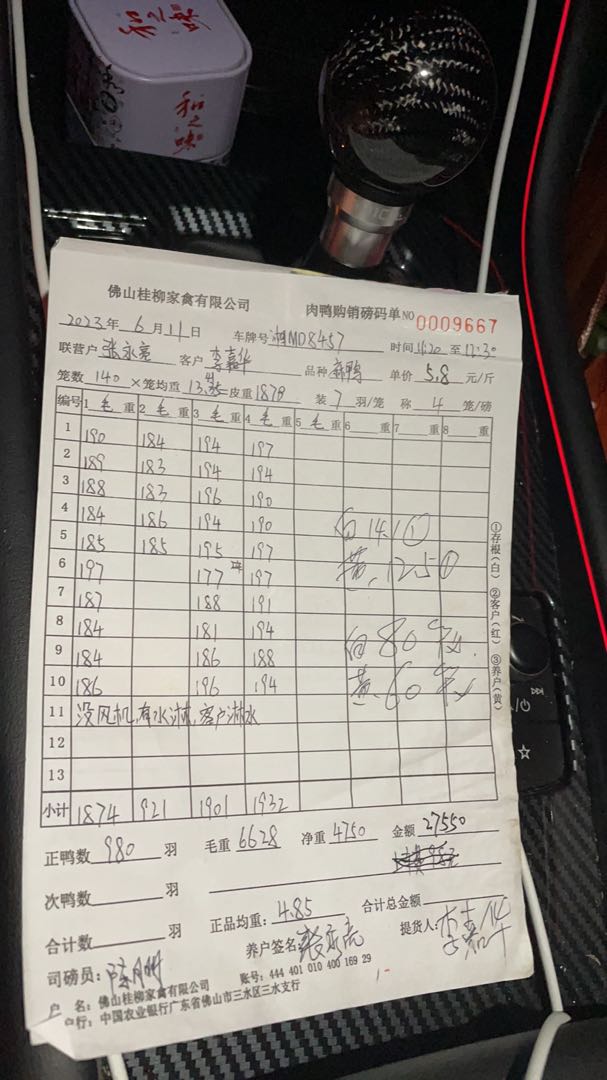 和之味
和之味
佛山桂柳家禽有限公司 肉鸭购销磅码单 NO 0009667
2023年 6月 11日 车牌号 湘MD8457 时间 11:20 至 12:30
联营户 张永亮 客户 李嘉华 品种 麻鸭 单价 5.8 元/斤
笼数 140 × 笼均重 =皮重 1878 装 7 羽/笼 称 4 笼/磅
编号 1 毛 重 2 毛 重 3 毛 重 4 毛 重 5 毛 重 6 重 7 重 8 重
1 190 184 194 197
2 189 183 194 194
3 188 183 196 190
4 184 186 194 190 白14.1①
5 185 185 195 197
6 197 177 197 黄.12.5①
7 187 188 191
8 184 181 194
9 184 186 188 白80
10 186 196 194 黄.60
11 没风机,有水淋,客户淋水
12
13
小计 1874 921 1901 1932
①存根(白) ②客户(红) ③养户(黄)
正鸭数 980 羽 毛重 6628 净重 4750 金额 27550
次鸭数 羽
合计数 羽 正品均重: 4.85 合计总金额
司磅员: 养户签名: 张永亮 提货人: 李嘉华
名: 佛山桂柳家禽有限公司 账号: 444 401 010 400 169 29
户行: 中国农业银行广东省佛山市三水区三水支行